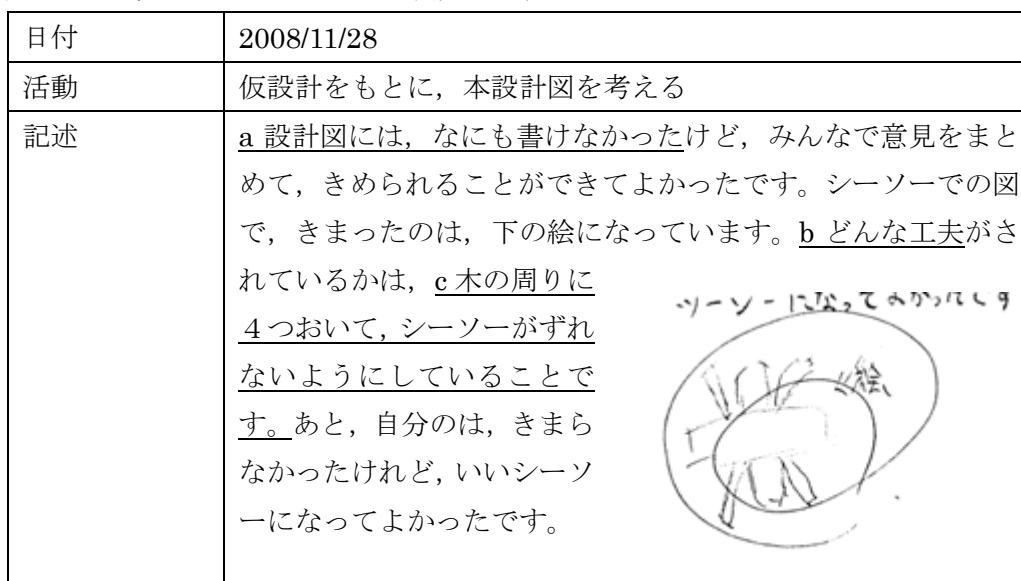 日付 2008/11/28
活動 仮設計をもとに，本設計図を考える
記述 a 設計図には，なにも書けなかったけど，みんなで意見をまと
めて，きめられることができてよかったです。シーソーでの図
で，きまったのは，下の絵になっています。b どんな工夫がさ
れているかは，c 木の周りに
４つおいて，シーソーがずれ
ないようにしていることで
す。あと，自分のは，きまら
なかったけれど，いいシーソ
ーになってよかったです。
シーソーになってよかったです
絵